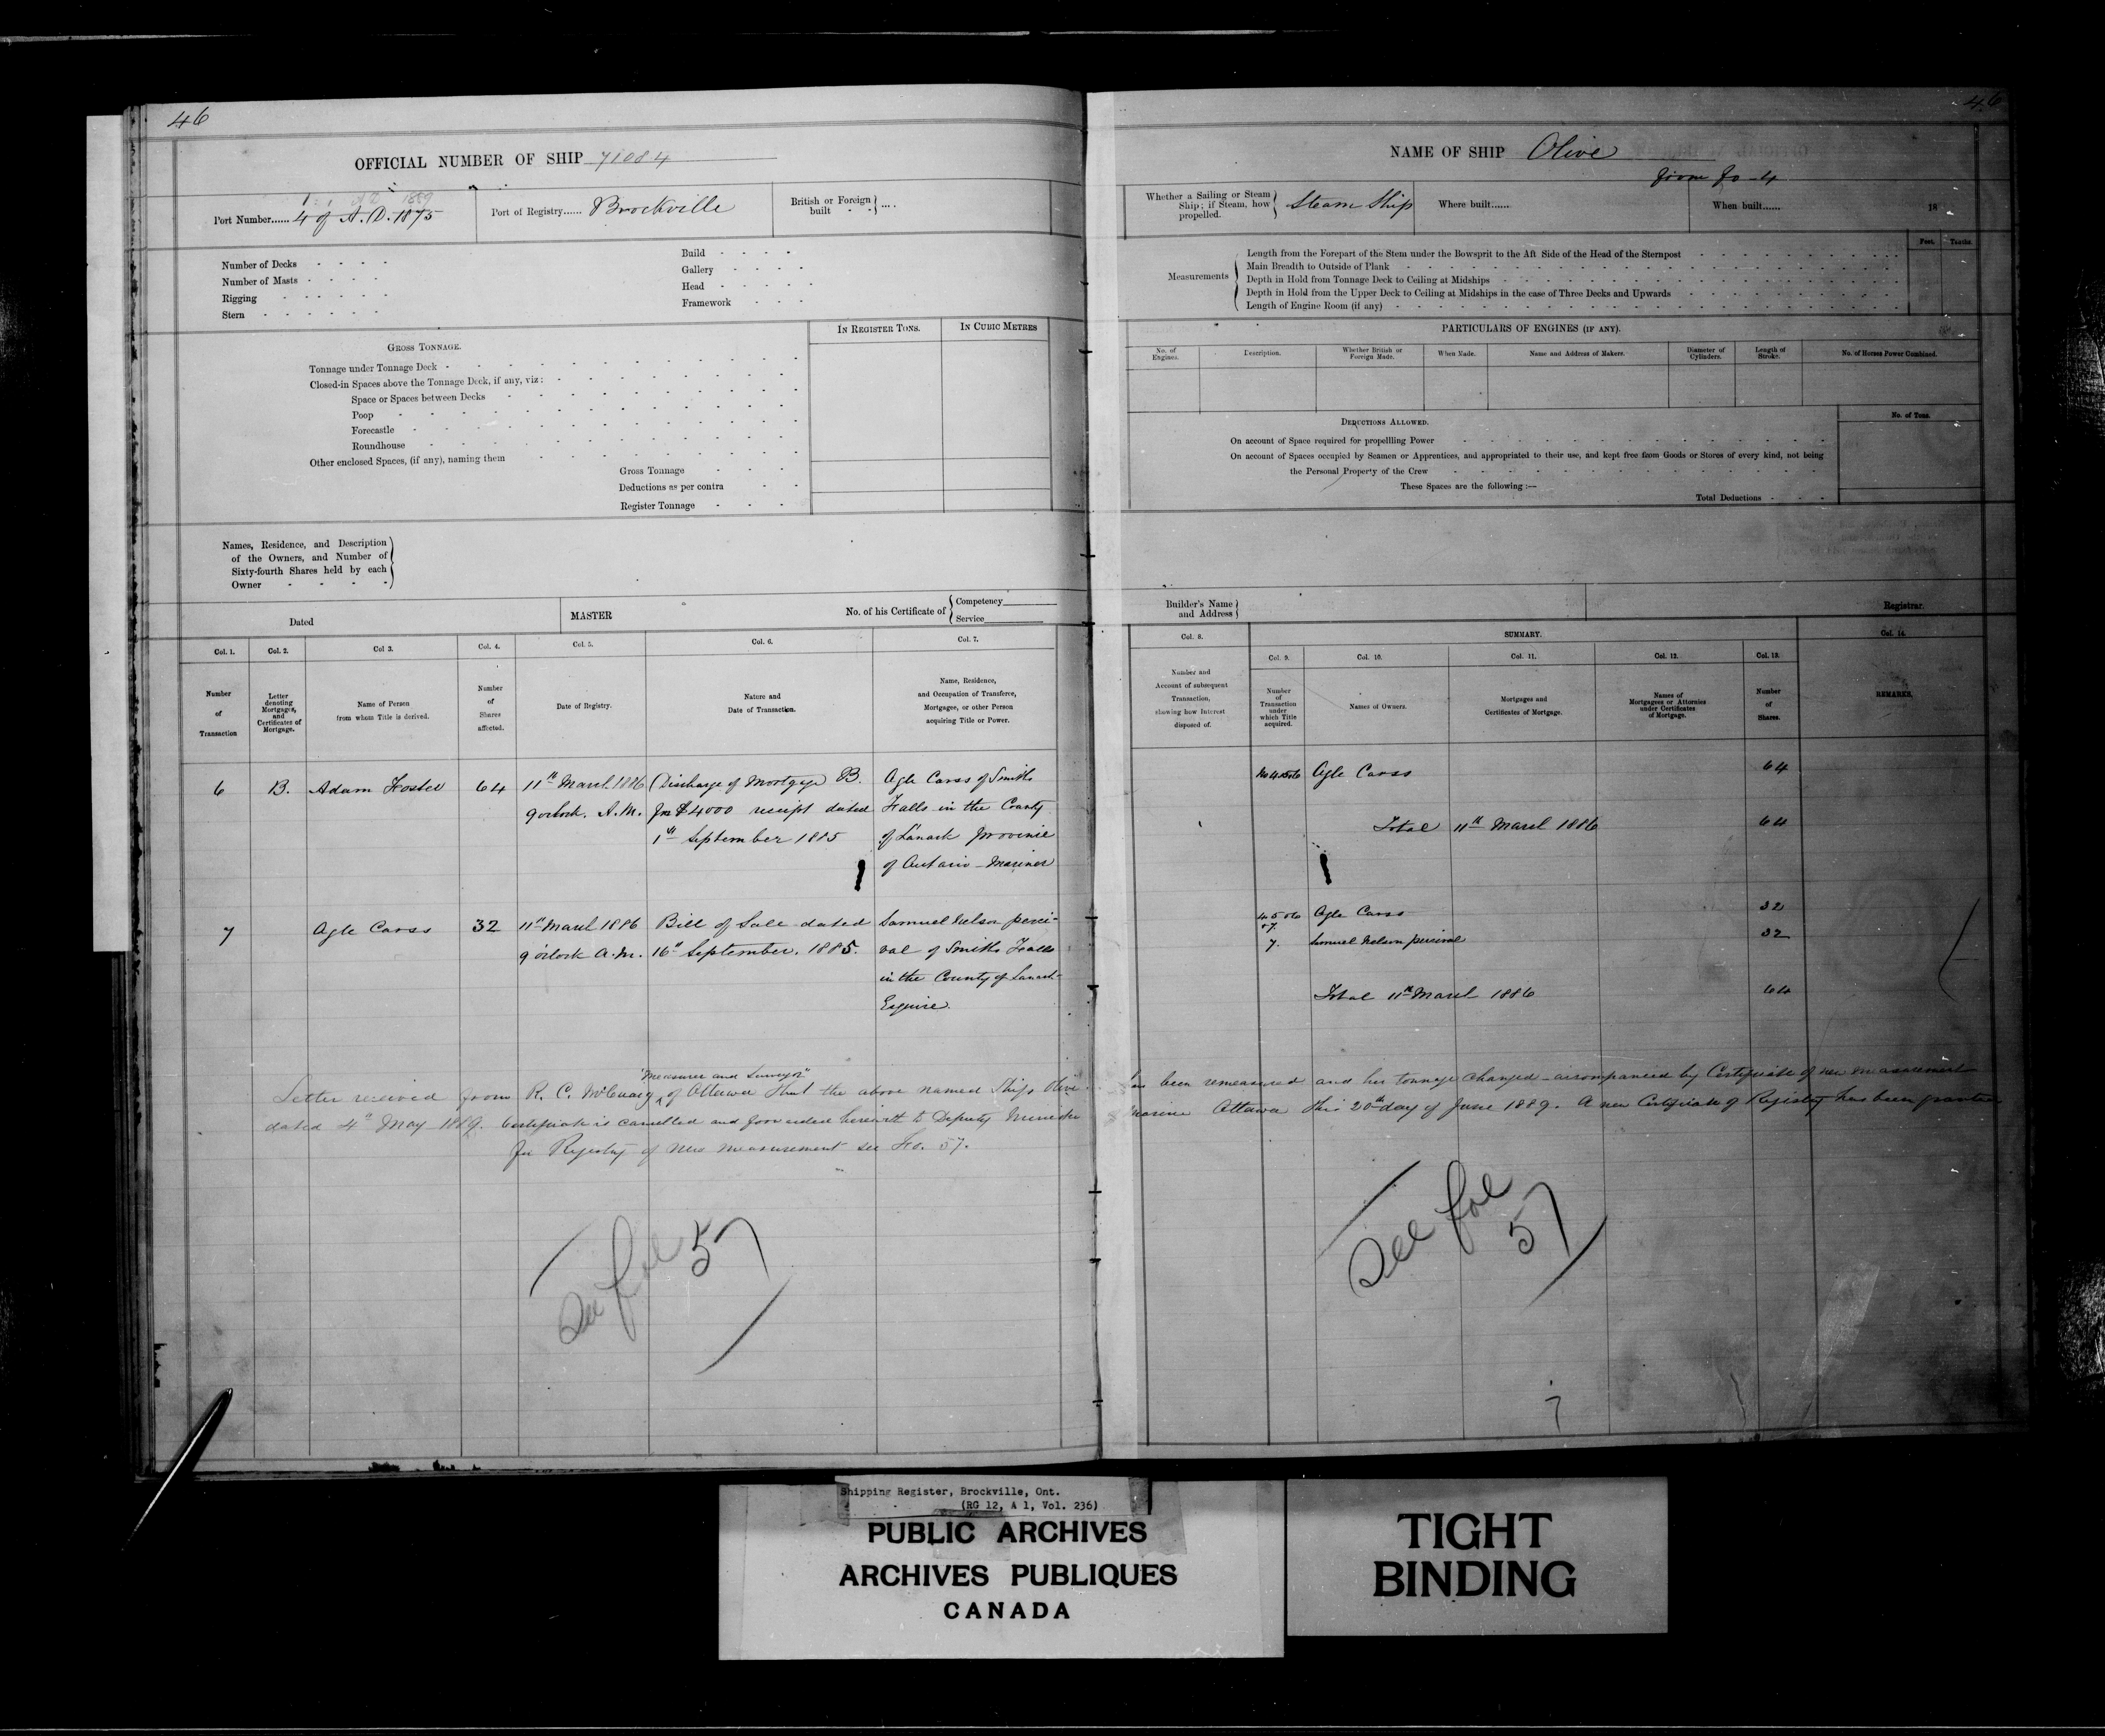 46
OFFICIAL NUMBER OF SHIP 71084
1 A D 1889
Port Number...... 4 of A.D. 1875
Port of Registry...... Brockville
British or Foreign built - - ....
Number of Decks
Number of Masts
Rigging
Stern
Build
Gallery
Head
Framework
GROSS TONNAGE.
IN REGISTER TONS.
IN CUBIC METRES
Tonnage under Tonnage Deck
Closed-in Spaces above the Tonnage Deck, if any, viz:
Space or Spaces between Decks
Poop
Forecastle
Roundhouse
Other enclosed Spaces, (if any), naming them
Gross Tonnage
Deductions as per contra
Register Tonnage
Names, Residence, and Description
of the Owners, and Number of
Sixty-fourth Shares held by each
Owner
Dated
MASTER
No. of his Certificate of
Competency
Service
Col. 1.
Col. 2.
Col 3.
Col. 4.
Col. 5.
Col. 6.
Col. 7.
Number of Transaction
Letter denoting Mortgages, and Certificates of Mortgage.
Name of Person from whom Title is derived.
Number of Shares affected.
Date of Registry.
Nature and Date of Transaction.
Name, Residence, and Occupation of Transferee, Mortgagee, or other Person acquiring Title or Power.
6 B. Adam Foster 64 11th March 1886 Discharge of Mortgage B. Agle Carss of Smiths
9 oclock. A.M. for $4000 receipt dated Falls in the County
1st September 1885 of Lanark Province
of Ontario - Mariner
7 Agle Carss 32 11th March 1886 Bill of Sale dated Samuel Nelson perci-
9 oclock A.M. 16th September. 1885. val of Smiths Falls
in the County of Lanark
Esquire.
"Measurer and Surveyor"
Letter recieved from R. C. McCuaig of Ottawa that the above named Ship Olive
dated 4th May 1889. Certificate is cancelled and forwarded herewith to Deputy Minister
for Registry of New measurement see Fo. 57.
See fol 57
46
NAME OF SHIP Olive
from fo - 4
Whether a Sailing or Steam
Ship; if Steam, how
propelled.
Steam Ship
Where built......
When built......
18
Feet.
Tenths.
Measurements
Length from the Forepart of the Stem under the Bowsprit to the Aft Side of the Head of the Sternpost
Main Breadth to Outside of Plank
Depth in Hold from Tonnage Deck to Ceiling at Midships
Depth in Hold from the Upper Deck to Ceiling at Midships in the case of Three Decks and Upwards
Length of Engine Room (if any)
PARTICULARS OF ENGINES (IF ANY).
No. of Engines.
Description.
Whether British or Foreign Made.
When Made.
Name and Address of Makers.
Diameter of Cylinders.
Length of Stroke.
No. of Horses Power Combined.
DEDUCTIONS ALLOWED.
No. of Tons.
On account of Space required for propelling Power
On account of Spaces occupied by Seamen or Apprentices, and appropriated to their use, and kept free from Goods or Stores of every kind, not being
the Personal Property of the Crew
These Spaces are the following :—
Total Deductions
Builder's Name
and Address
Registrar.
Col. 8.
SUMMARY.
Col. 14.
Col. 9.
Col. 10.
Col. 11.
Col. 12.
Col. 13.
Number and Account of subsequent Transaction, showing how Interest disposed of.
Number of Transaction under which Title acquired.
Names of Owners.
Mortgages and Certificates of Mortgage.
Names of Mortgagees or Attornies under Certificates of Mortgage.
Number of Shares.
REMARKS.
Agle Carss 64
Total 11th March 1886 64
Agle Carss 32
7. Samuel Nelson percival 32
Total 11th March 1886 64
has been remeasured and her tonnage changed - accompanied by Certificate of new measurement
Marine Ottawa this 20th day of June 1889. A new Certificate of Registry has been granted
See fol 57
7
Shipping Register, Brockville, Ont.
(RG 12, A 1, Vol. 236)
PUBLIC ARCHIVES
ARCHIVES PUBLIQUES
CANADA
TIGHT
BINDING